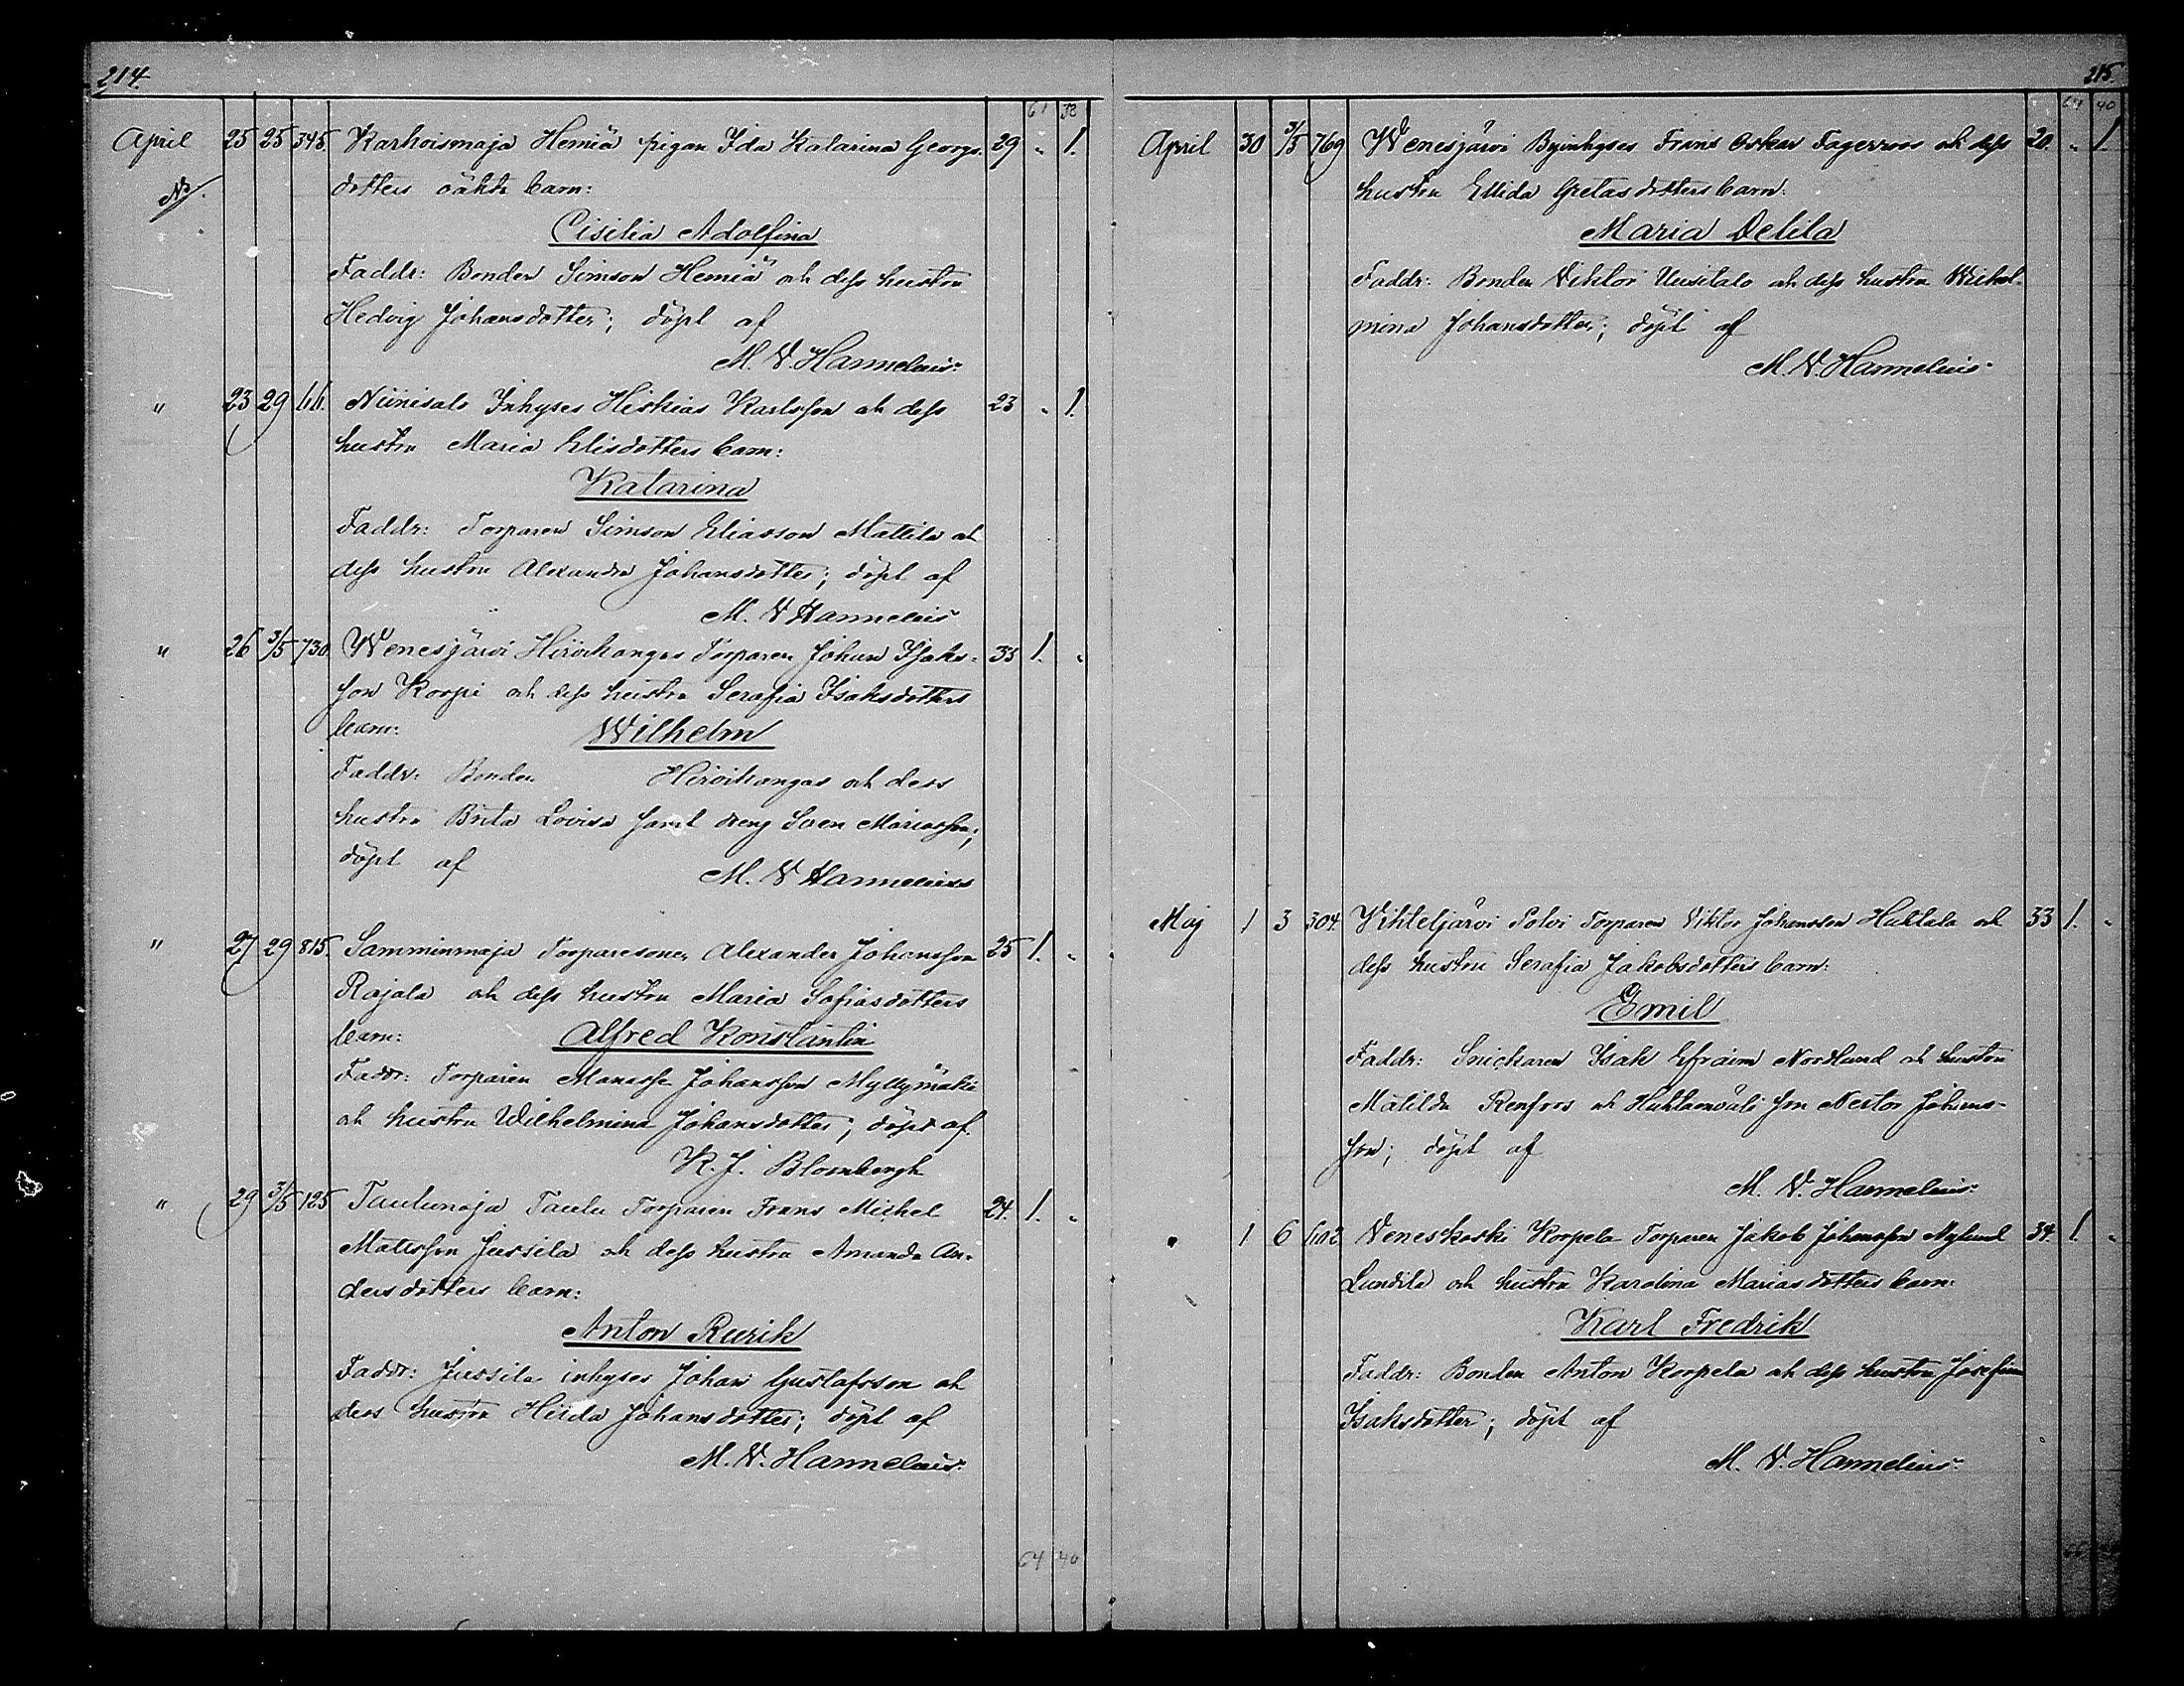 214.
61 38
April 25 25 345. Karhoismaja Hemiä pigan Ida Katarina Georgs- 29 " 1.
dotters oäkta barn:
Cisilia Adolfina
Faddr: Bonden Simson Hemiä och dess hustru
Hedvig Johansdotter; döpt af
M. V. Hannelius.
" 23 29 66. Niinisalo Inhyses Hiskias Karlsson och dess 23 " 1.
hustru Maria Elisdotters barn:
Katarina
Faddr: Torparen Simson Eliasson Mattila och
dess hustru Alexandra Johansdotter; döpt af
M. V Hannelius
" 26 3/5 730. Wenesjärvi Hiröikangas Torparen Johan Isaks- 33 1. "
son Korpi och dess hustru Serafia Isaksdotters
barn: Wilhelm
Faddr: Bonden Hiröikangas och dess
hustru Brita Lovisa samt dreng Sven Mariasson;
döpt af M. V Hannelius
" 27 29 815. Samminmaja Torparesonen Alexander Johansson 25 1. "
Rajala och dess hustru Maria Sofiasdotters
barn: Alfred Konstantin
Faddr: Torparen Manasse Johansson Myllymäki
och hustru Wilhelmina Johansdotter; döpt af
K. J. Blombergh
" 29 3/5 125 Taulunoja Taulu Torparen Frans Michel 24. 1. "
Matsson Jussila och dess hustru Amanda An-
dersdotters barn:
Anton Rurik
Faddr: Jussila inhyses Johan Gustafsson och
dess hustru Hilda Johansdotter; döpt af
M. V. Hannelius.
64 40
215.
64 40
April 30 3/5 769 Wenesjärvi Byinhyses Frans Oskar Fagerroos och dess 20. " 1.
hustru Ellida Gretasdotters barn:
Maria Delila
Faddr: Bonden Viktor Uusitalo och dess hustru Wilhel-
mina Johansdotter; döpt af
M. V. Hannelius.
Maj 1 3 304. Vihteljärvi Polvi Torparen Viktor Johansson Huhtala och 33 1. "
dess hustru Serafia Jakobsdotters barn:
Emil
Faddr: Snickaren Isak Efraim Nordlund och hustru
Matilda Renfors och son Nestor Johans-
son; döpt af
M. V. Hannelius.
" 1 6 602 Veneskoski Korpela Torparen Jakob Johansson Nylund 34. 1. "
Lundila och hustru Karolina Mariasdotters barn:
Karl Fredrik
Faddr: Bonden Anton Korpela och dess hustru Josefina
Isaksdotter; döpt af
M. V. Hannelius.